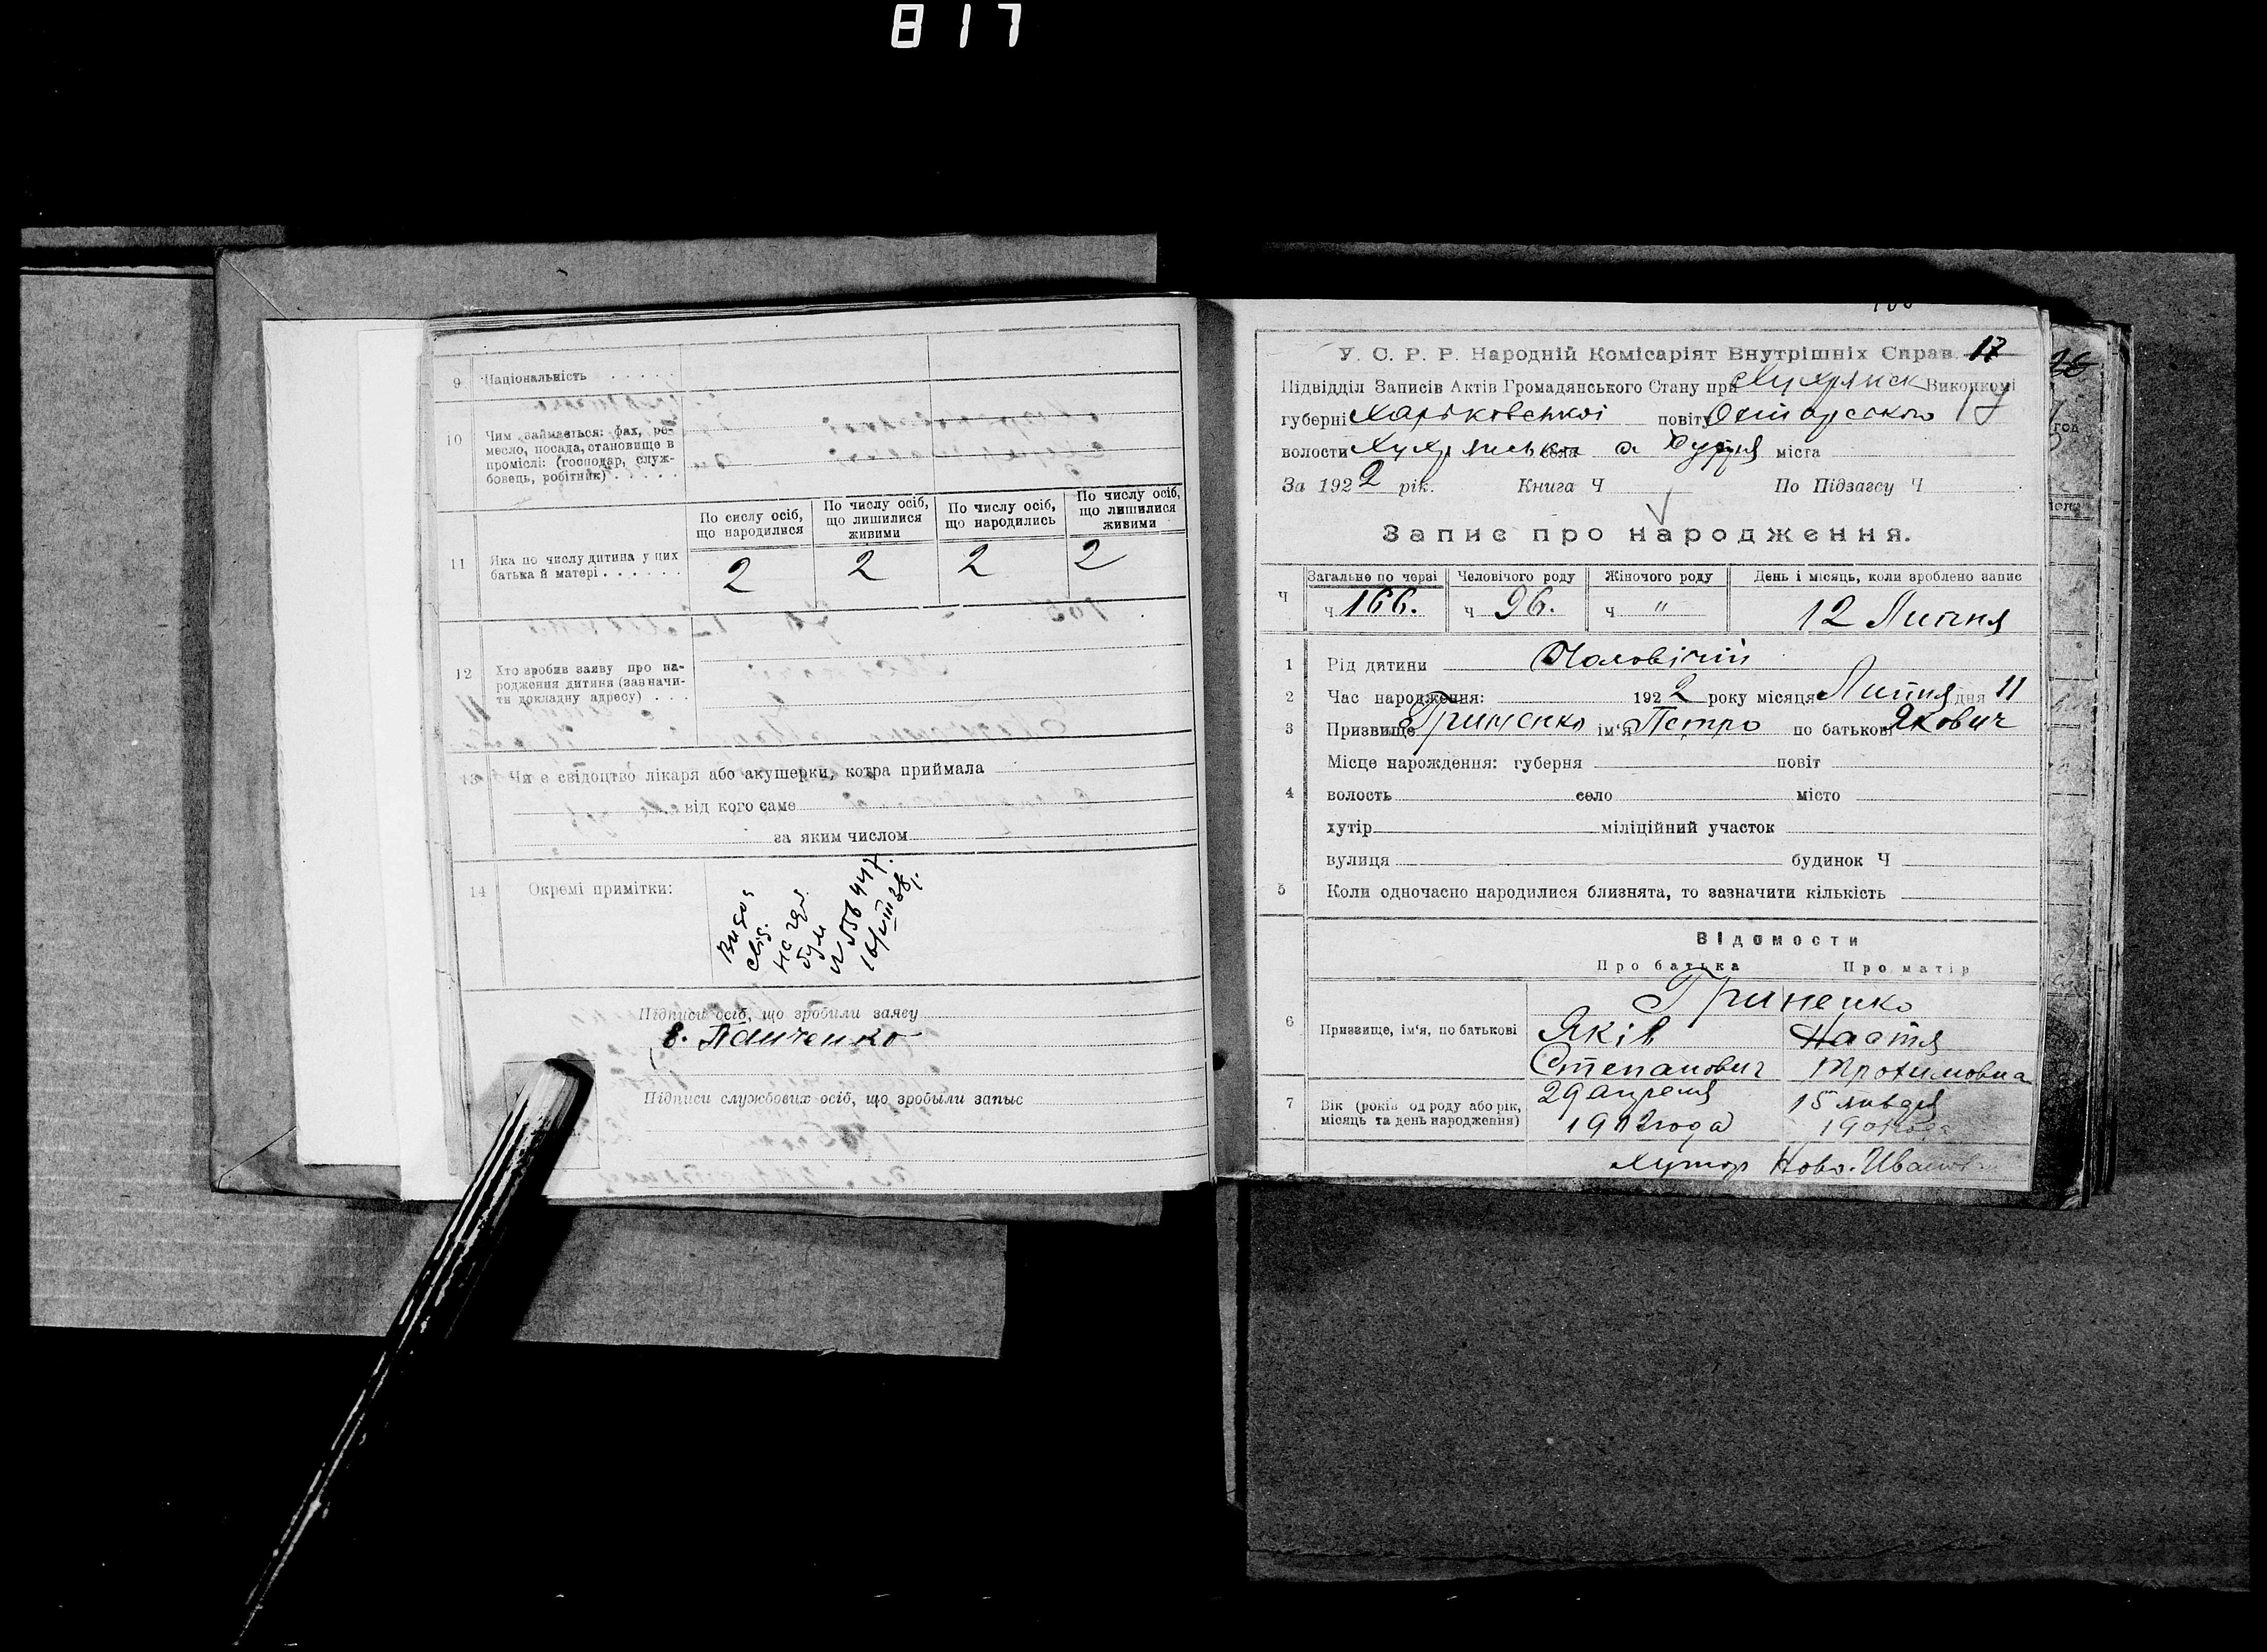 817
9 Національність . . . . .
10 Чим займається: фах, ре-
месло, посада, становище в
промислі: (господар, служ-
бовець, робітник) . . . . .
По числу осіб, що народилися
По числу осіб, що лишилися живими
По числу осіб, що народились
По числу осіб, що лишилися живими
11 Яка по числу дитина у цих
батька й матері . . . . . .
2 2 2 2
12 Хто зробив заяву про на-
родження дитини (зазначи-
ти докладну адресу) . . .
13 Чи є свідоцтво лікаря або акушерки, котра приймала
від кого саме
за яким числом
14 Окремі примітки:
Підписи осіб, що зробили заяву
Панченко
Підписи службових осіб, що зробыли запыс
У. С. Р. Р. Народній Комісаріят Внутрішніх Справ. 17
Підвідділ Записів Актів Громадянського Стану при Хухрянск Виконкомі
губерні Харьковської повіту Охтирського 17
волости села міста
За 1922 рік. Книга Ч По Підзагсу Ч
Запис про народження.
Ч Загальне по черзі Человічого роду Жіночого роду День і місяць, коли зроблено запис
ч 166. ч 96. ч " 12 Липня
1 Рід дитини Чоловічий
2 Час народження: 1922 року місяця Липня дня 11
3 Призвище Гриненко ім'я Петро по батькові Якович
4 Місце нарождення: губерня повіт
волость село місто
хутір міліційний участок
вулиця будинок Ч
5 Коли одночасно народилися близнята, то зазначити кількість
Відомости
Про батька Про матір
Гриненко
6 Призвище, ім'я, по батькові Яків Настя
Степанович Трохимовна
7 Вік (років од роду або рік,
місяць та день народження)
29 апреля 15 января
года
хутор Ново-